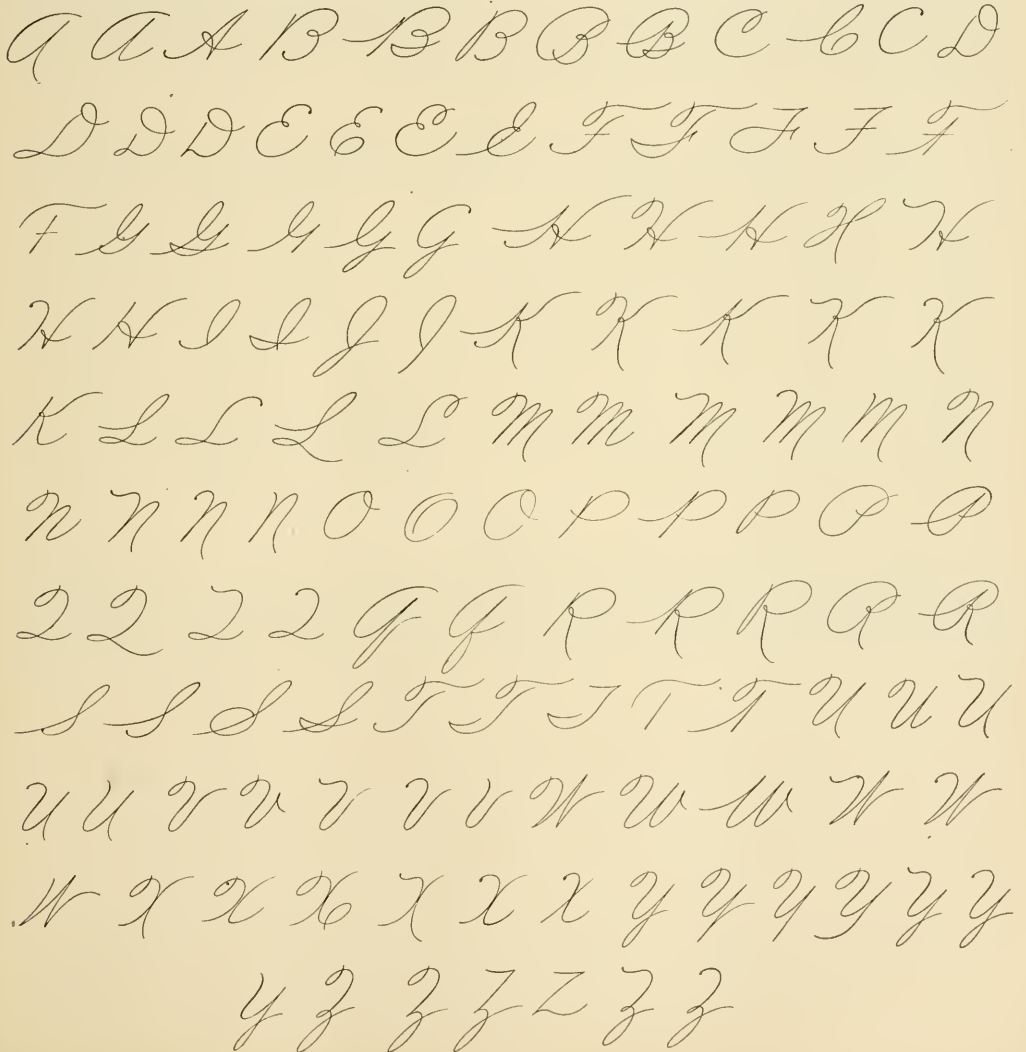 A A A B B B B B C C C D
D D D E E E E F F F F F
F G G G G G H H H H H
H H I I J J K K K K K
K L L L L M M M M M N
N N N N O O O P P P P P
Q Q Q Q Q Q R R R R R
S S S S T T T T T U U U
U U V V V V V W W W W W
W X X X X X X Y Y Y Y Y Y
Y Z Z Z Z Z Z